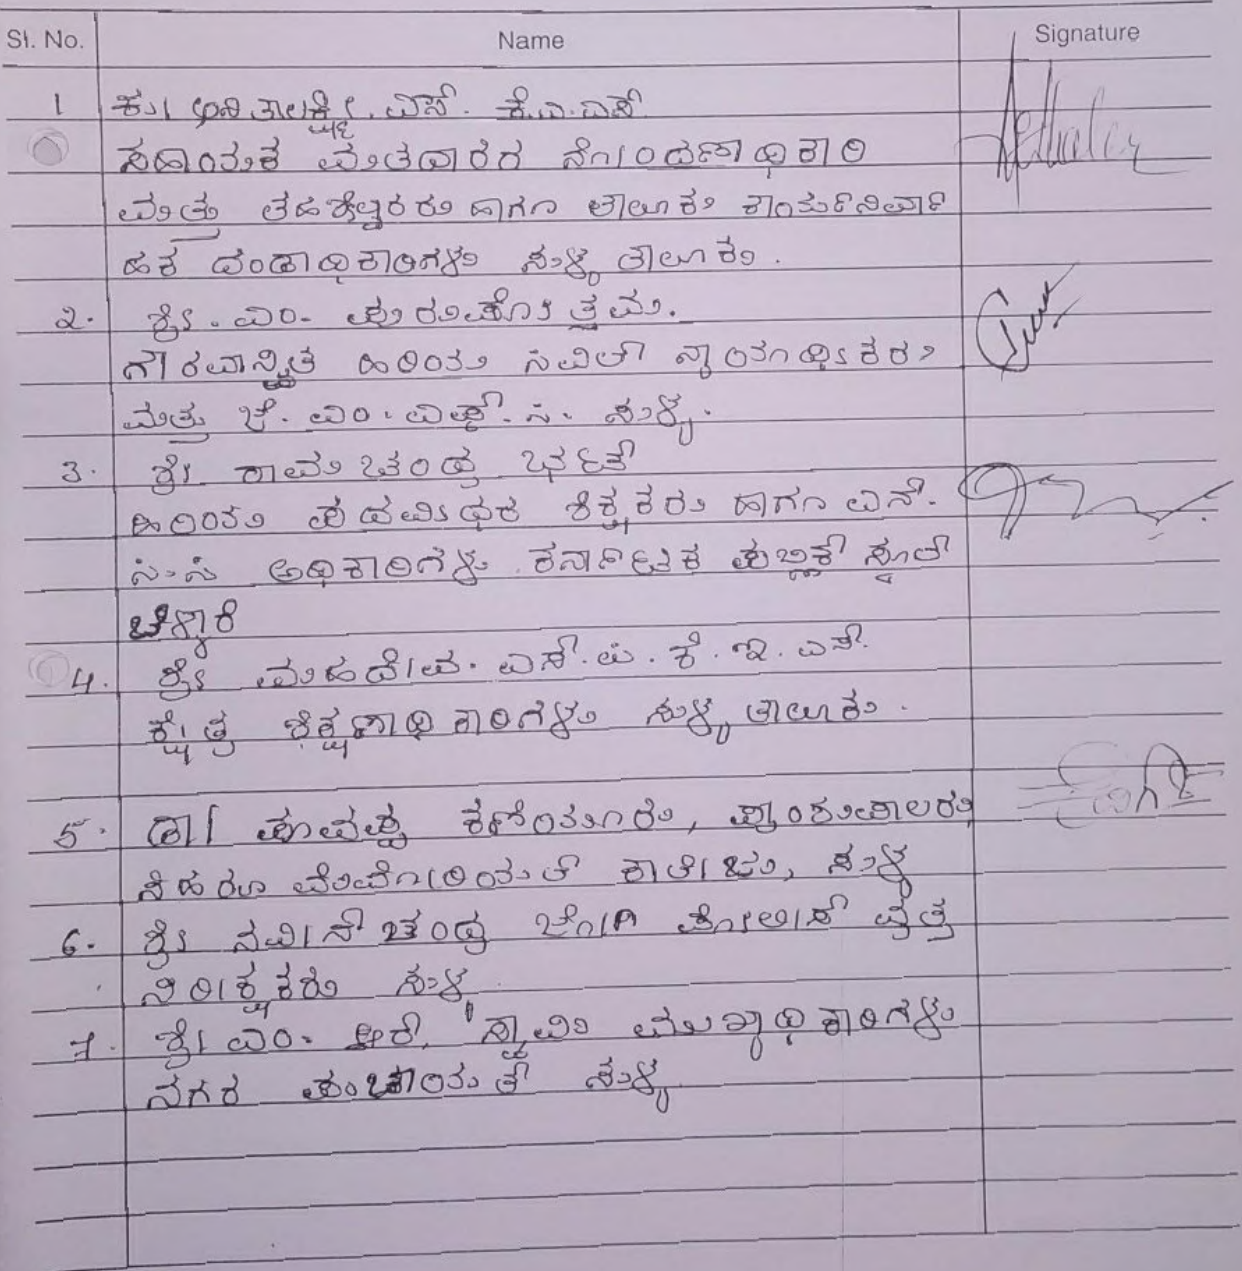 Sl. No. Name Signature
1 ಕು| ಅನಿತಾಲಕ್ಷ್ಮೀ. ಎಸ್. ಕೆ.ಎ.ಎಸ್
ಸಹಾಯಕ ಮತದಾರರ ನೋಂದಣಾಧಿಕಾರಿ
ಮತ್ತು ತಹಶೀಲ್ದಾರರು ಹಾಗೂ ತಾಲೂಕು ಕಾರ್ಯನಿರ್ವಾ
ಹಕ ದಂಡಾಧಿಕಾರಿಗಳು ಸುಳ್ಯ ತಾಲೂಕು.
2. ಶ್ರೀ. ಎಂ. ಪುರುಷೋತ್ತಮ.
ಗೌರವಾನ್ವಿತ ಹಿರಿಯ ಸಿವಿಲ್ ನ್ಯಾಯಾಧೀಶರು
ಮತ್ತು ಜೆ. ಎಂ. ಎಫ್. ಸಿ. ಸುಳ್ಯ.
3. ಶ್ರೀ ರಾಮಚಂದ್ರ ಭಟ್
ಹಿರಿಯ ಪದವೀಧರ ಶಿಕ್ಷಕರು ಹಾಗೂ ಎನ್.
ಸಿ.ಸಿ ಅಧಿಕಾರಿಗಳು ಕರ್ನಾಟಕ ಪಬ್ಲಿಕ್ ಸ್ಕೂಲ್
ಬೆಳ್ಳಾರೆ
4. ಶ್ರೀ ಮಹದೇವ. ಎಸ್.ಪಿ. ಕೆ. ಇ. ಎಸ್.
ಕ್ಷೇತ್ರ ಶಿಕ್ಷಣಾಧಿಕಾರಿಗಳು ಸುಳ್ಯ ತಾಲೂಕು.
5. ಡಾ| ಪೂವಪ್ಪ ಕಣಿಯೂರು, ಪ್ರಾಂಶುಪಾಲರು
ನೆಹರೂ ಮೆಮೋರಿಯಲ್ ಕಾಲೇಜು, ಸುಳ್ಯ
6. ಶ್ರೀ ನವೀನ್ ಚಂದ್ರ ಜೋಗಿ ಪೋಲೀಸ್ ವೃತ್ತ
ನಿರೀಕ್ಷಕರು ಸುಳ್ಯ
7. ಶ್ರೀ ಎಂ. ಆರ್. ಸ್ವಾಮಿ ಮುಖ್ಯಾಧಿಕಾರಿಗಳು
ನಗರ ಪಂಚಾಯತ್ ಸುಳ್ಯ